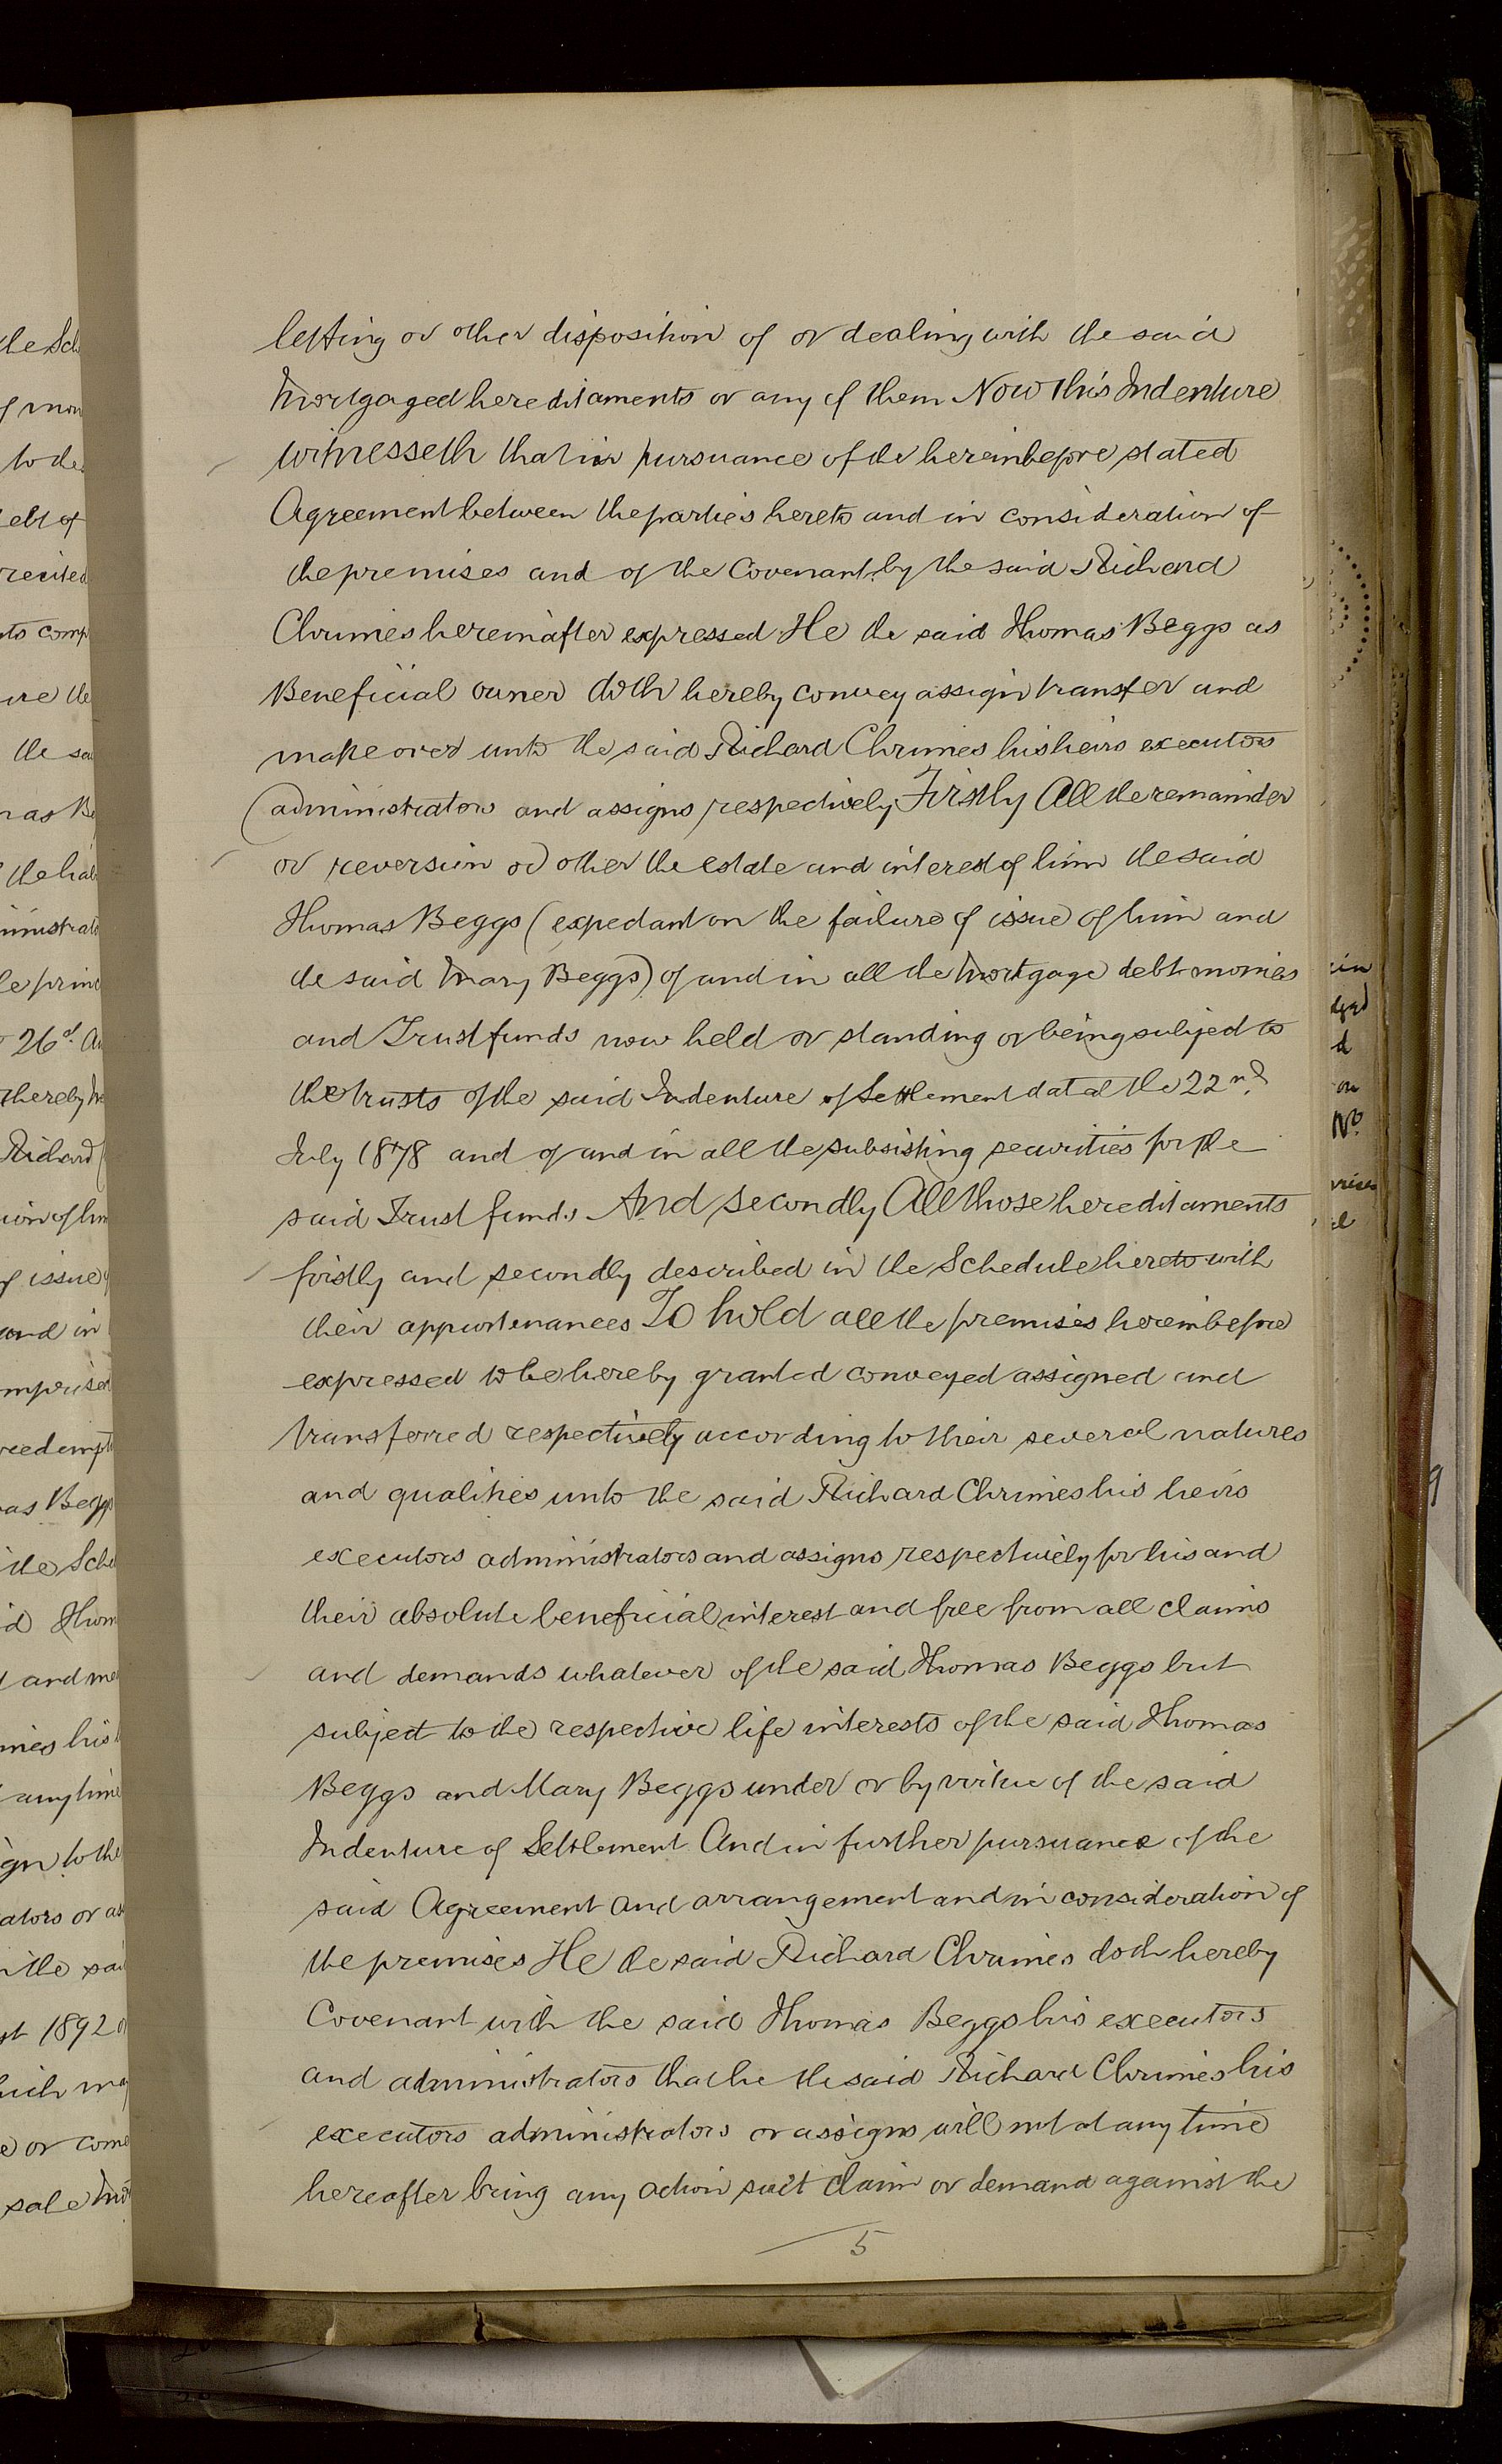 letting or other disposition of or dealing with the said
Mortgaged hereditaments or any of them Now this Indenture
witnesseth that in pursuance of the hereinbefore stated
Agreement between the parties hereto and in consideration of
the premises and of the Covenant by the said Richard
Chrimes hereinafter expressed He the said Thomas Beggs as
Beneficial owner doth hereby convey assign transfer and
make over unto the said Richard Chrimes his heirs executors
administrators and assigns respectively Firstly All the remainder
or reversion or other the estate and interest of him the said
Thomas Beggs (expectant on the failure of issue of him and
the said Mary Beggs) of and in all the Mortgage debt monies
and Trust funds now held or standing or being subject to
the trusts of the said Indenture of Settlement dated the 22nd
July 1878 and of and in all the subsisting securities for the
said Trust funds And secondly All those hereditaments
firstly and secondly described in the Schedule hereto with
their appurtenances To hold all the premises hereinbefore
expressed to be hereby granted conveyed assigned and
transferred respectively according to their several natures
and qualities unto the said Richard Chrimes his heirs
executors administrators and assigns respectively for his and
their absolute beneficial interest and free from all claims
and demands whatever of the said Thomas Beggs but
subject to the respective life interests of the said Thomas
Beggs and Mary Beggs under or by virtue of the said
Indenture of Settlement And in further pursuance of the
said Agreement and arrangement and in consideration of
the premises He the said Richard Chrimes doth hereby
Covenant with the said Thomas Beggs his executors
and administrators that he the said Richard Chrimes his
executors administrators or assigns will not at any time
hereafter bring any action suit claim or demand against the
5